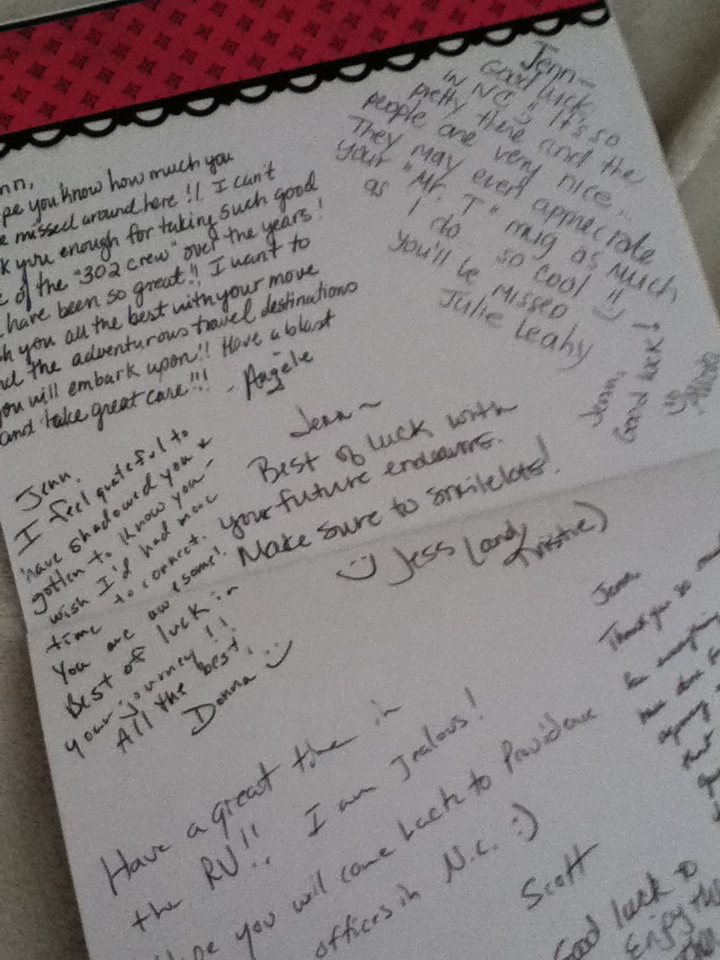 pe you know how much you
missed around here !! I can't
k you enough for taking such good
of the "302 crew" over the years!
have been so great!! I want to
you all the best with your move
the adventurous travel destinations
you will embark upon!! Have a blast
and take great care!!!
- Angèle
Jenn~
Good luck
in NC :) It's so
pretty there and the
people are very nice...
They may even appreciate
your "Mr. T" mug as much
as I do so cool !!
You'll be missed :)
Julie Leahy
Jenn,
Good luck!
Jenn~
Best of luck with
your future endeavors.
Make sure to smile lots!
:) Jess (and Kristie)
Jenn.
I feel grateful to
have shadowed you &
gotten to know you -
wish I'd had more
time to connect.
You are awesome!
Best of luck in
your journey!!
All the best,
Donna :)
Have a great time in
the RV!! I am Jealous!
you will come back to Providence
offices in N.C. :)
Scott
Jenn
Thank you so
everything
that
Good luck
Enjoy